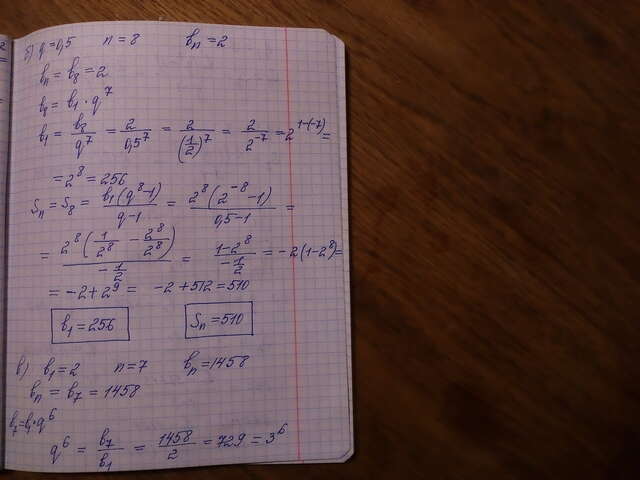 б) q = 0,5 n = 8 bn = 2
bn = b8 = 2
b8 = b1 · q^7
b1 = b8/q^7 = 2/0,5^7 = 2/(1/2)^7 = 2/2^-7 = 2^1-(-7) =
= 2^8 = 256
Sn = S8 = b1(q^8-1)/q-1 = 2^8(2^-8-1)/0,5-1 =
= 2^8(1/2^8 - 2^8/2^8)/-1/2 = 1-2^8/-1/2 = -2(1-2^8) =
= -2+2^9 = -2+512 = 510
b1 = 256 Sn = 510
в) b1 = 2 n = 7 bn = 1458
bn = b7 = 1458
b7 = b1·q^6
q^6 = b7/b1 = 1458/2 = 729 = 3^6